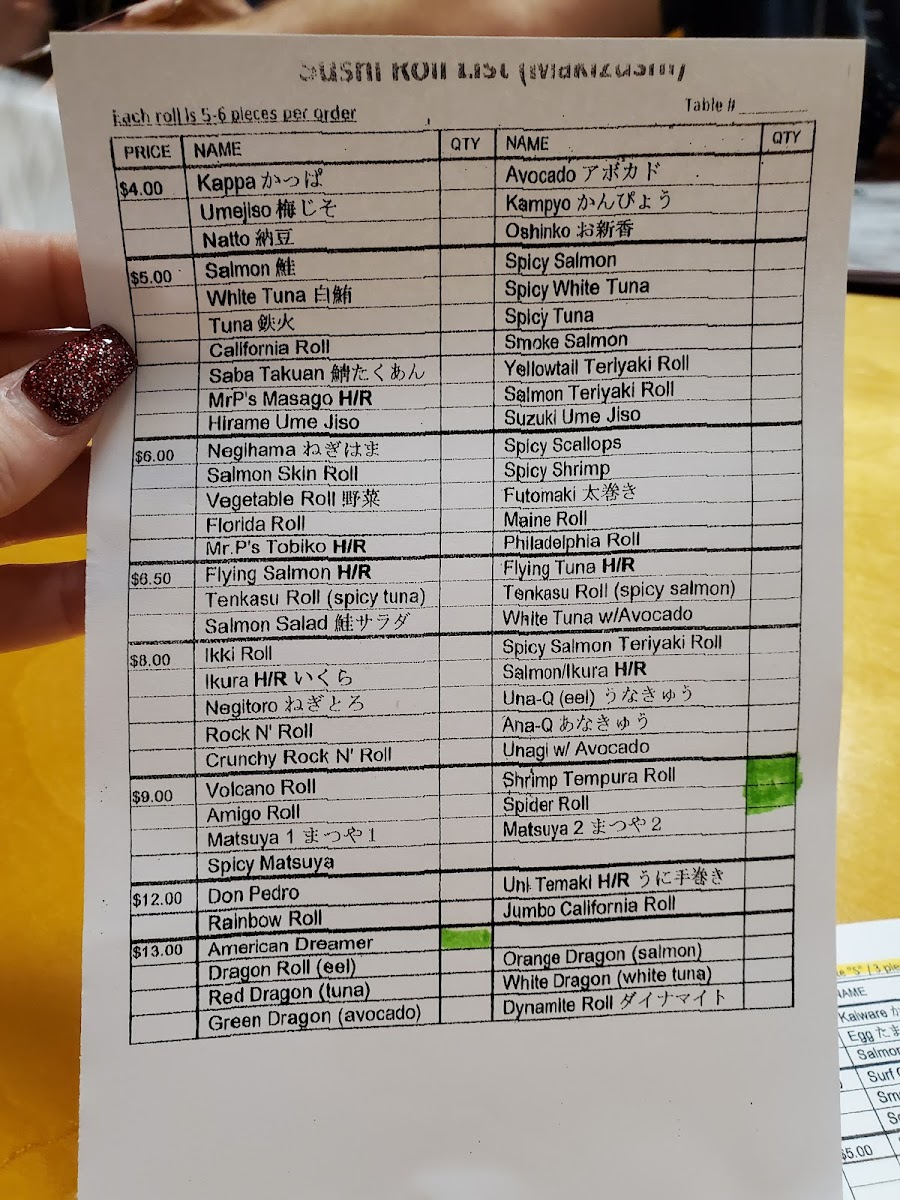 Sushi Roll List (Makizushi)
Each roll is 5-6 pieces per order
Table #
PRICE NAME QTY NAME QTY
$4.00 Kappa かっぱ Avocado アボカド
Umejiso 梅じそ Kampyo かんぴょう
Natto 納豆 Oshinko お新香
$5.00 Salmon 鮭 Spicy Salmon
White Tuna 白鮪 Spicy White Tuna
Tuna 鉄火 Spicy Tuna
California Roll Smoke Salmon
Saba Takuan 鯖たくあん Yellowtail Teriyaki Roll
MrP's Masago H/R Salmon Teriyaki Roll
Hirame Ume Jiso Suzuki Ume Jiso
$6.00 Negihama ねぎはま Spicy Scallops
Salmon Skin Roll Spicy Shrimp
Vegetable Roll 野菜 Futomaki 太巻き
Florida Roll Maine Roll
Mr.P's Tobiko H/R Philadelphia Roll
$6.50 Flying Salmon H/R Flying Tuna H/R
Tenkasu Roll (spicy tuna) Tenkasu Roll (spicy salmon)
Salmon Salad 鮭サラダ White Tuna w/Avocado
$8.00 Ikki Roll Spicy Salmon Teriyaki Roll
Ikura H/R いくら Salmon/Ikura H/R
Negitoro ねぎとろ Una-Q (eel) うなきゅう
Rock N' Roll Ana-Q あなきゅう
Crunchy Rock N' Roll Unagi w/ Avocado
$9.00 Volcano Roll Shrimp Tempura Roll
Amigo Roll Spider Roll
Matsuya 1 まつや1 Matsuya 2 まつや2
Spicy Matsuya
$12.00 Don Pedro Uni Temaki H/R うに手巻き
Rainbow Roll Jumbo California Roll
$13.00 American Dreamer
Dragon Roll (eel) Orange Dragon (salmon)
Red Dragon (tuna) White Dragon (white tuna)
Green Dragon (avocado) Dynamite Roll ダイナマイト
NAME
Kaiware
Egg
Salmon
Surf
$5.00